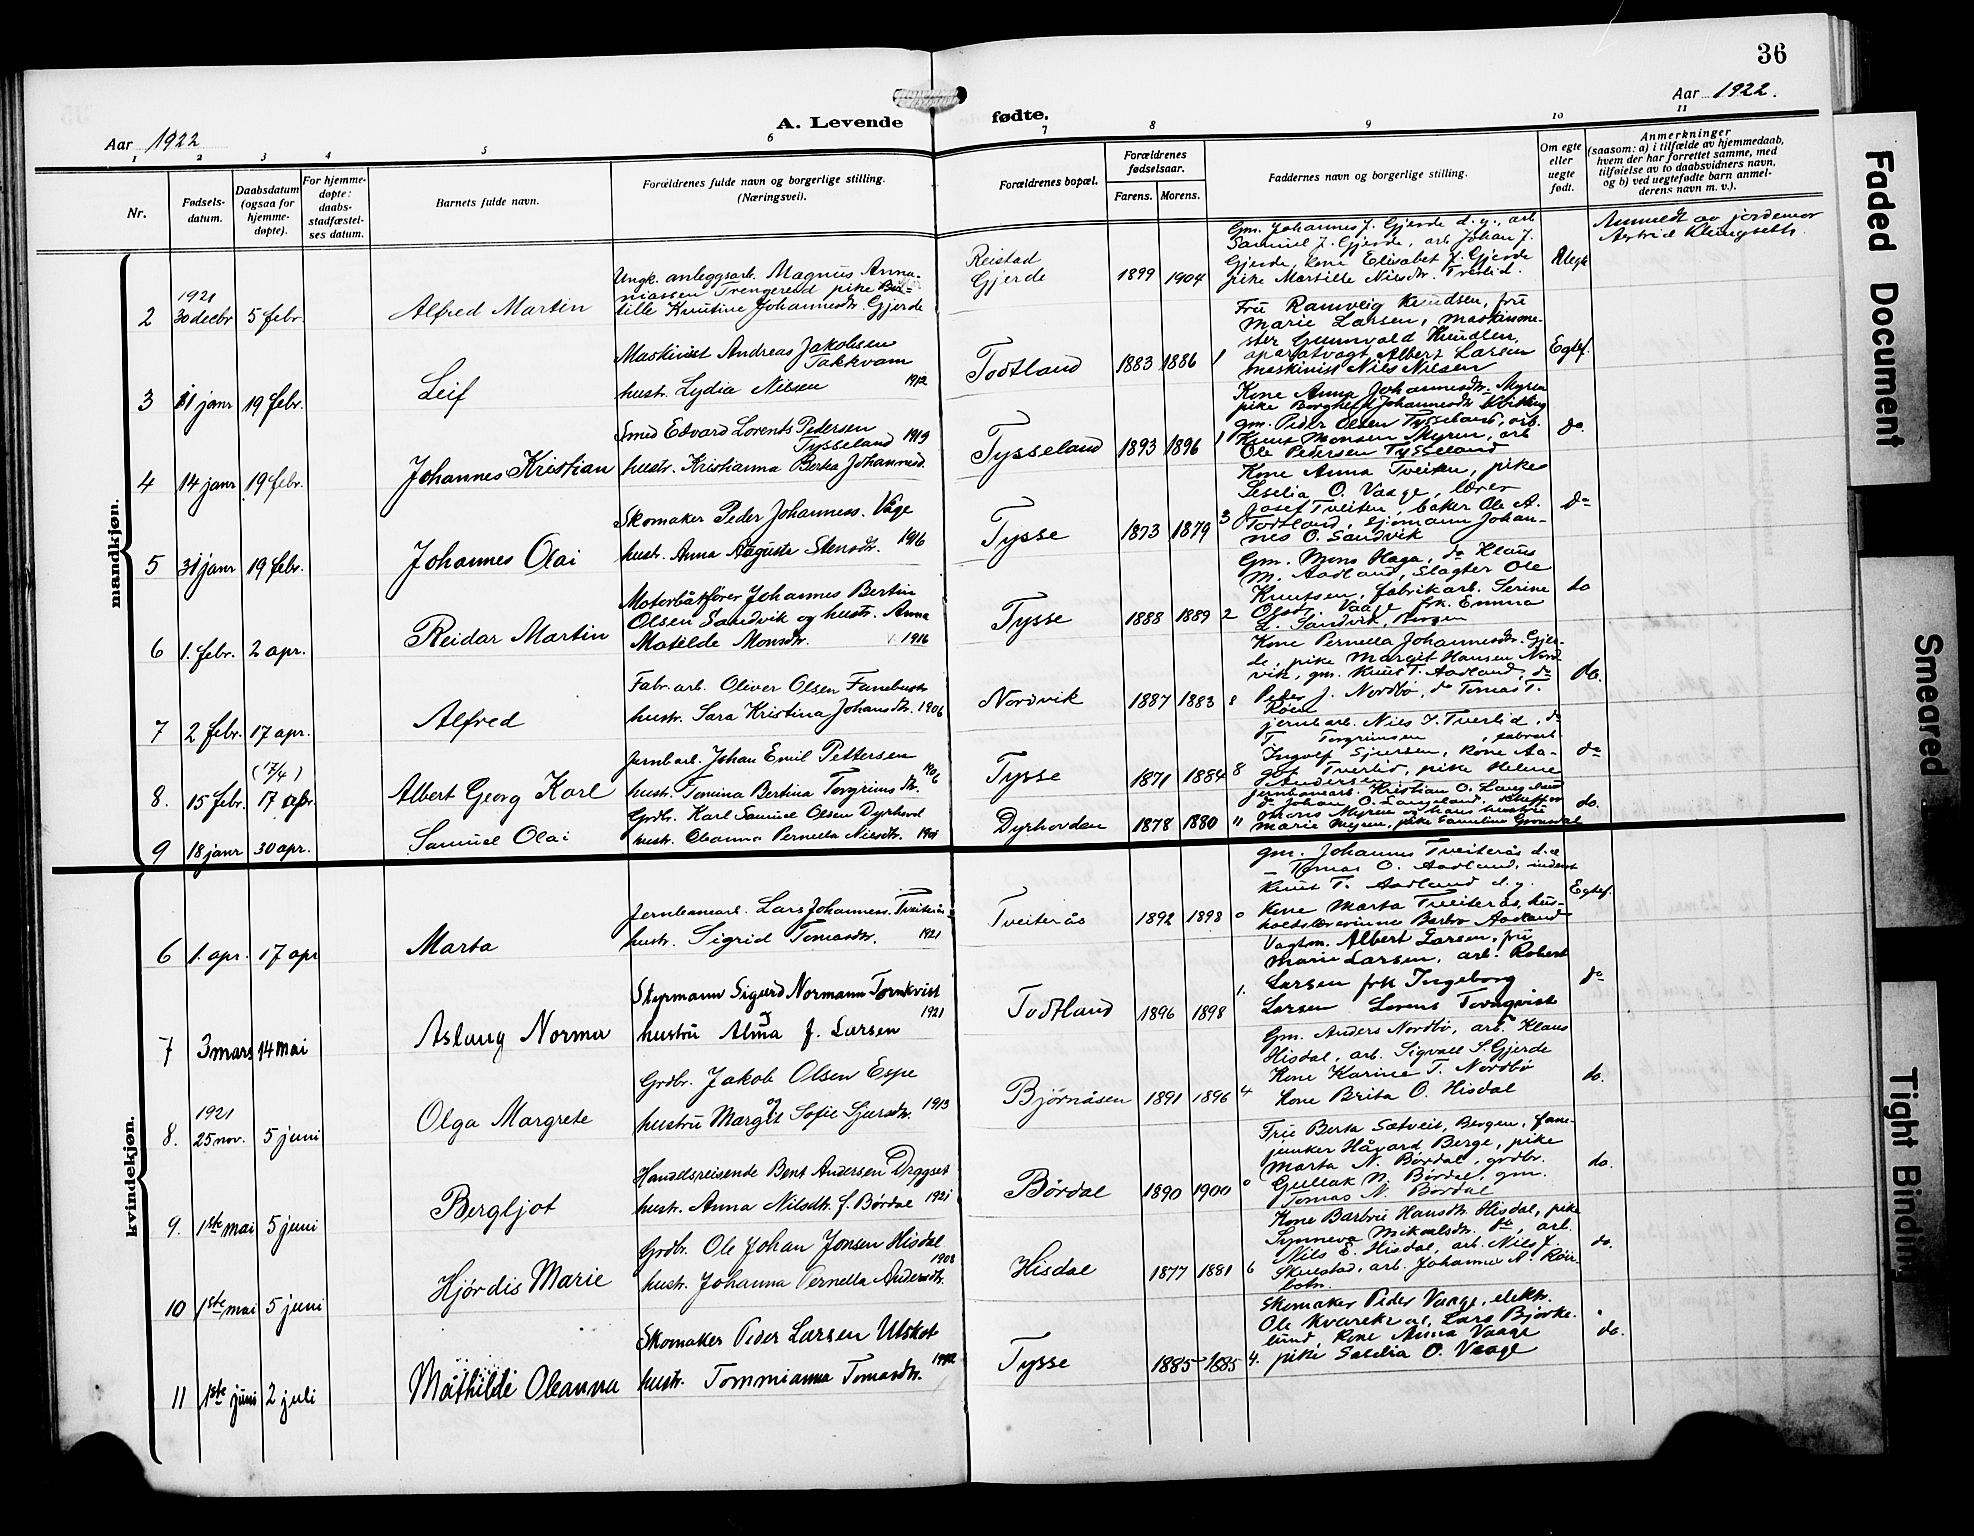 36
Aar 1922
A. Levende
fødte.
Aar 1922.
1 2 3 4 5 6 7 8 9 10 11
Nr.
Fødsels-
datum.
Daabsdatum
(ogsaa for
hjemme-
døpte).
For hjemme-
døpte:
daabs-
stadfæstel-
ses datum.
Barnets fulde navn.
Forældrenes fulde navn og borgerlige stilling.
(Næringsvei).
Forældrenes bopæl.
Forældrenes
fødselsaar.
Farens. Morens.
Faddernes navn og borgerlige stilling.
Om egte
eller
uegte
født.
Anmerkninger
(saasom: a) i tilfælde av hjemmedaab,
hvem der har forrettet samme, med
tilføielse av to daabsvidners navn,
og b) ved uegtefødte barn anmel-
derens navn m. v.).
mandkjøn.
2
1921
30 decbr
5 febr.
Alfred Martin
Ungk. anleggsarb. Magnus Anna-
niassen Trengereid pike
tille Knutine Johannesdtr. Gjerde
Reistad
Gjerde
1899 1904
Gm. Johannes J. Gjerde d.y., arb
Samuel J. Gjerde, arb Johan J.
Gjerde, kone Elisabet J. Gjerde
pike Martille Nilsdtr. Tverlid.
Uegte
Anmeldt av jordemor
Astrid Klungseth.
3
11 janr
19 febr.
Leif
Maskinist Andreas Jakobsen
Takkvam
hustr. Lydia Nilsen 1912
Todtland
1883 1886 1
Fru Ranveig Knudsen, fru
Marie Larsen, maskinme-
ster Gunvald Knudsen,
aparatvagt Albert Larsen
maskinist Nils Nilsen
Egtef.
4
14 janr
19 febr.
Johannes Kristian
Smed Edvard Lorents Pedersen
Tysseland 1919
hustr. Kristianna Berta Johannesd.
Tysseland
1893 1896 1
Kone Anna Johannesdtr. Myren
pike Borghild Johannesdtr
gm. Peder Olsen Tysseland, arb.
Knut Monsen Myren, arb
Ole Pedersen Tysseland
do
5
31 janr
19 febr.
Johannes Olai
Skomaker Peder Johanness. Våge
hustr. Anna Augusta Stensdtr. 1916
Tysse
1873 1879 3
Kone Anna Tveiten, pike
Seselia O. Vaage, lærer
Josef Tveiten, baker Ole A.
Todtland, sjømann Johan-
nes O. Sandvik
do
6
1. febr.
2 apr.
Reidar Martin
Motorbåtfører Johannes Bertin
Olsen Sandvik og hustr. Anna
Matilde Monsdtr. 1916
Tysse
1888 1889 2
Gm. Mons Haga, do Klaus
M. Aadland, Slagter Ole
Knutsen, fabrikarb. Serine
Olsdr. Vaage frk. Emma
L. Sandvik, Bergen
do
7
2 febr.
17 apr.
Alfred
Fabr. arb. Oliver Olsen Fanebust
hustr. Sara Kristina Johansdtr. 1906
Nordvik
1887 1883 8
Kone Pernella Johannesdtr. Gjer-
de, pike Margit Hansen Nord-
vik, gm. Knut T. Aadland, do
Peder J. Nordbø, do Tomas T.
Røen
do.
8.
15 febr.
(17/4)
17 apr
Albert Georg Karl
Jernbarb. Johan Emil Pettersen
1906
hust. Tomina Bertina Torgrimsdtr.
Tysse
1871 1884 8
jernbarb. Nils J. Tverlid, do
T. Torgrimsen
Ingolf Sjursen, kone Aa-
got Tverlid, pike Helene
Andersen
do
9
18 janr
30 apr.
Samuel Olai
Grdbr. Karl Samuel Olsen Dyrhovd
hustr. Oleanna Pernella Nilsdtr. 1901
Dyrhovden
1878 1880 11
jernbanearb. Kristian O. Langeland
do Johan O. Langeland,
Mons Myren og hans hustru
Marie Myren, pike
do.
kvindekjøn.
6
1. apr.
17 apr
Marta
Jernbanearb. Lars Johanness. Tveiterås
hustr. Sigrid Tomasdtr. 1921
Tveiterås
1892 1898 0
gm. Johannes Tveiterås d.e
– Tomas O. Aadland,
Knut T. Aadland d.y.
kone Marta Tveiterås, hus-
holdslærerinne Barbro Aadland
Egtef.
7
3 mars
14 mai
Aslaug Norma
Styrmann Sigurd Normann Tornkvist
1921
hustru Alma J. Larsen
Todtland
1896 1898 1.
Vagtm. Albert Larsen, fru
Marie Larsen, arb. Robert
Larsen frk Ingeborg
Larsen Lorens Tornqvist
do
8.
1921
25 nov.
5 juni
Olga Margrete
Grdbr. Jakob Olsen Espe
hustru Margit Sofie Sjursdtr. 1913
Bjørnåsen
1891 1896 4
Gm. Anders Nordbø, arb. Klaus
Hisdal, arb. Sigvall S. Gjerde
Kone Karine T. Nordbø
Kone Brita O. Hisdal
do.
9.
1ste mai
5 juni
Bergljot
Handelsreisende Bent Andersen Dragset
hustr. Anna Nilsdtr. f. Børdal 1921
Børdal
1890 1900 0
Fru Berta Sætveit, Bergen, fane-
junker Håvard Berge, pike
Marta N. Børdal, grdbr.
Gullak N. Børdal, gm.
Tomas N. Børdal
do.
10
1ste mai
5 juni
Hjørdis Marie
Grdbr. Ole Johan Jonsen Hisdal
1908
hustr. Johanna Pernella Andersdtr.
Hisdal
1877 1881 6
Kone Barbru Hansdtr. Hisdal, pike
Synneva Mikalsdtr. do, arb.
Nils E. Hisdal, arb. Nils J.
Skuestad, arb. Johannes A. Røn
botn.
do.
11
1ste juni
2 juli
Mathilde Oleanna
Skomaker Peder Larsen Ulskot
1912
hustr. Tommianna Tomasdtr.
Tysse
1885 1885 4.
Skomaker Peder Vaage, elektr.
Ole Kvarekval, Lars Bjørke-
lund, kone Anna Vaage
pike Seselia O. Vaage
do.
Faded Document
Smeared
Tight Binding